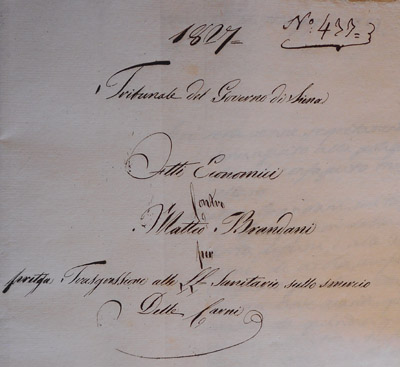 1827=
N.° 437=
Tribunale del Governo di Siena
Atti Economici
Contro
Matteo Brandani
per
pretesa Trasgressione alle LL Sanitarie sullo smercio
Delle Carni